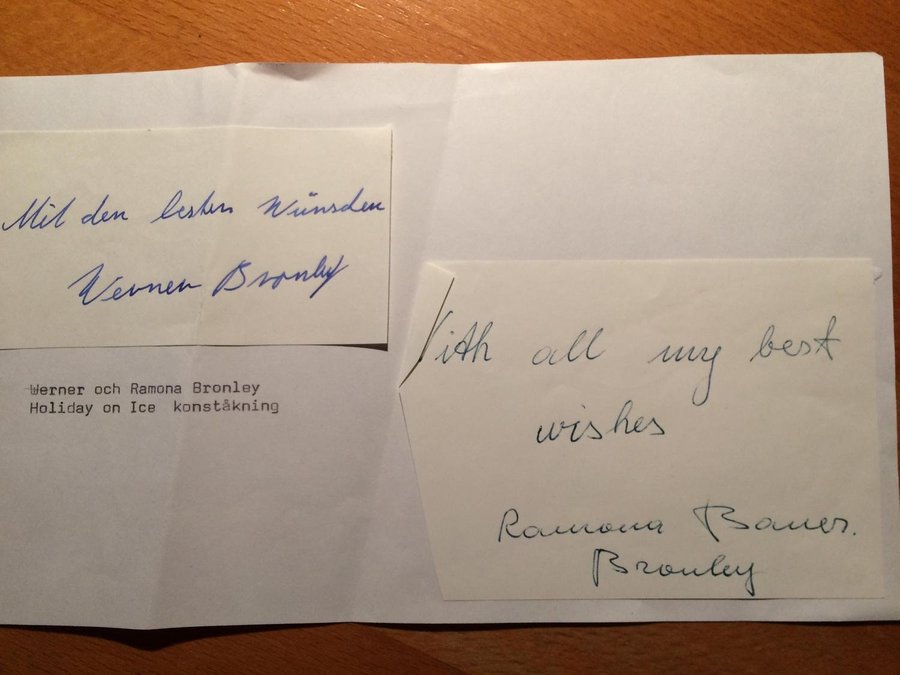 Mit den besten Wünschen
Werner Bronley
Werner och Ramona Bronley
Holiday on Ice konståkning
With all my best
wishes
Ramona Bauer.
Bronley